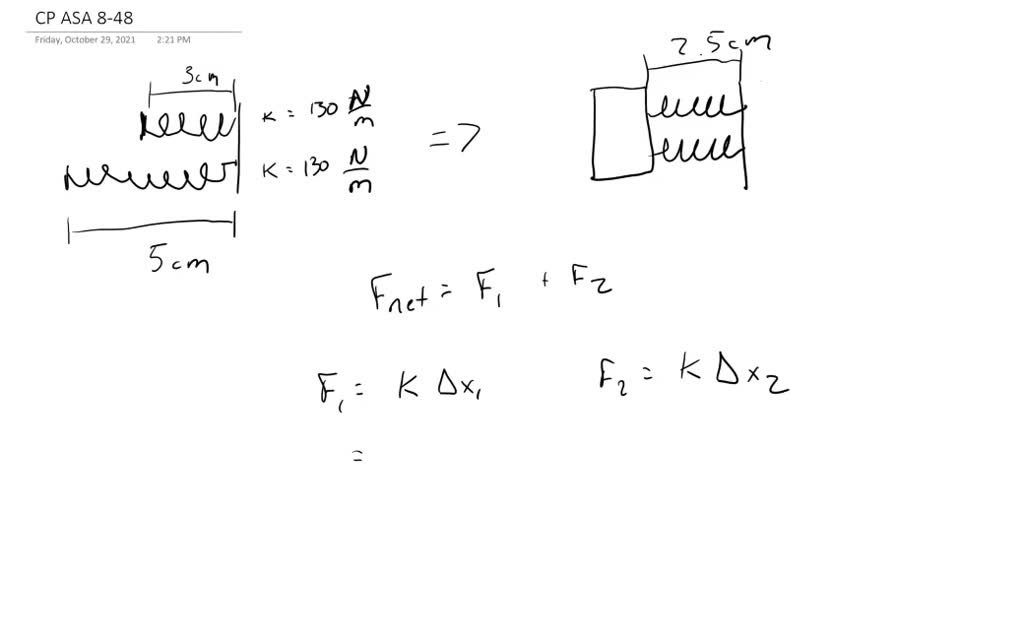 CP ASA 8-48
Friday, October 29, 2021 2:21 PM
3cm
K = 130 N/m
K = 130 N/m
5cm
=>
2.5cm
Fnet = F1 + F2
F1 = K Δx1
F2 = K Δx2
=